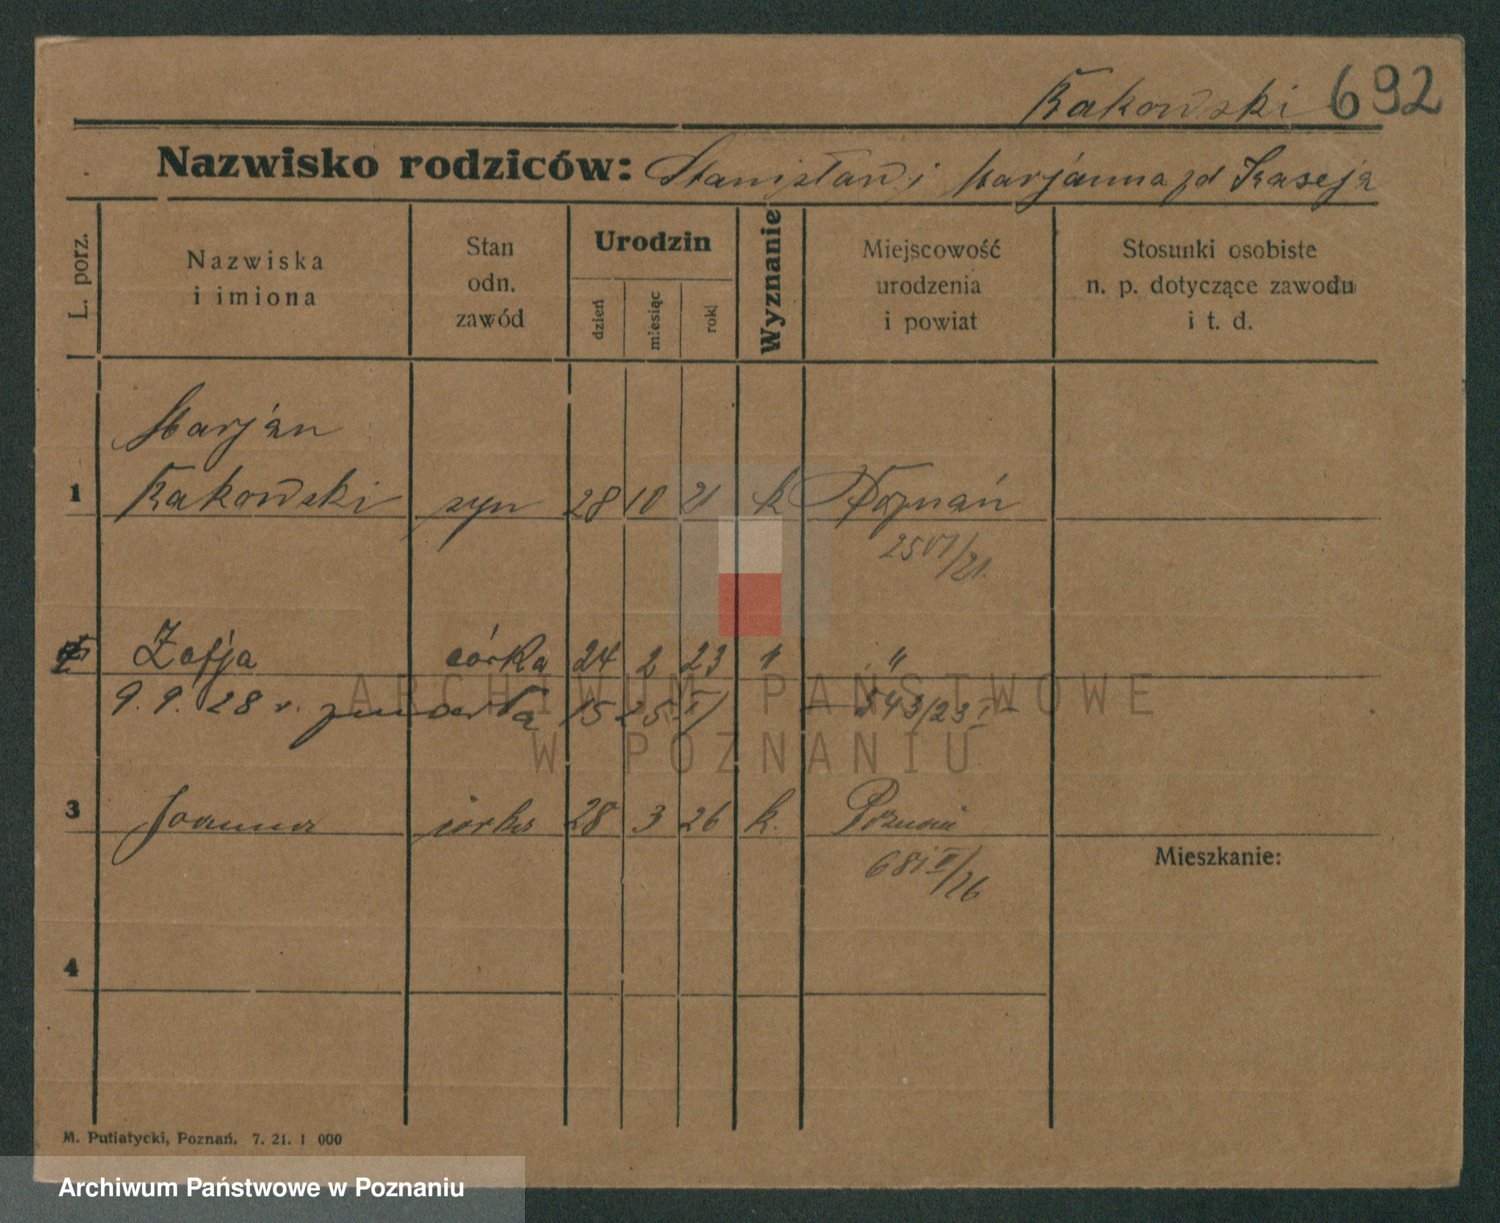 Rakowski 692
Nazwisko rodziców: Stanisław i Marjánna zd Kaseja
L. porz.
Nazwiska
i imiona
Stan
odn.
zawód
Urodzin
dzień
miesiąc
rok
Wyznanie
Miejscowość
urodzenia
i powiat
Stosunki osobiste
n. p. dotyczące zawodu
i t. d.
Marján
1 Rakowski syn 28 10 21 k Poznań
25VI/21.
2 Zofja córka 24 2 23 " "
9. 9. 28 r. zmarła 543/23
3 Joanna córka 28 3 26 k. Poznań
Mieszkanie:
4
M. Putiatycki, Poznań. 7. 21. 1 000
ARCHIWUM PAŃSTWOWE
W POZNANIU
Archiwum Państwowe w Poznaniu